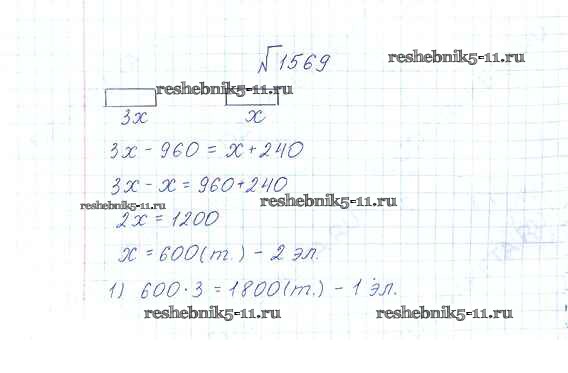 √1569 reshebnik5-11.ru
reshebnik5-11.ru
3x x
3x - 960 = x + 240
3x - x = 960 + 240
reshebnik5-11.ru reshebnik5-11.ru
2x = 1200
x = 600 (т.) - 2 эл.
1) 600 · 3 = 1800 (т.) - 1 эл.
reshebnik5-11.ru reshebnik5-11.ru